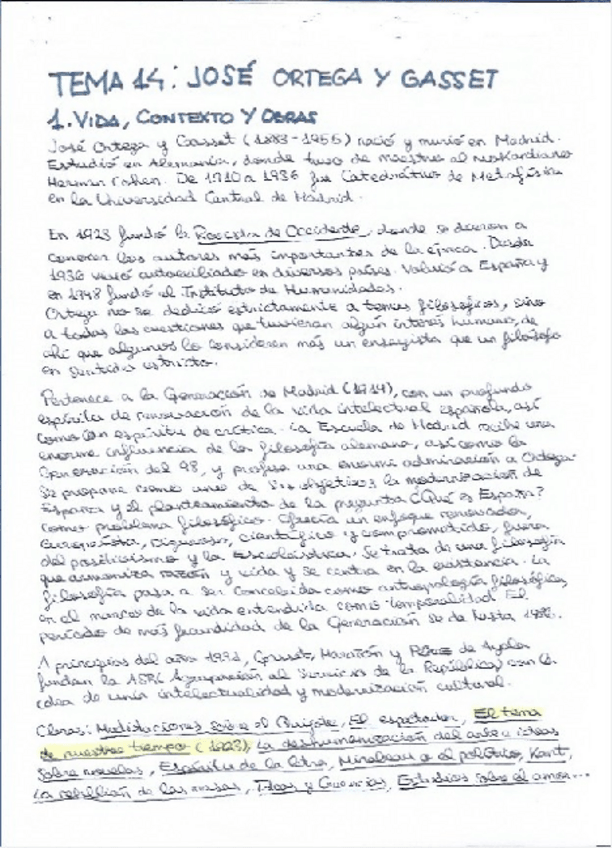 TEMA 14: JOSÉ ORTEGA Y GASSET
1. VIDA, CONTEXTO Y OBRAS
José Ortega y Gasset (1883-1955) nació y murió en Madrid.
Estudió en Alemania, donde tuvo de maestro al neokantiano
Herman Cohen. De 1910 a 1936 fue Catedrático de Metafísica
en la Universidad Central de Madrid.
En 1923 fundó la Revista de Occidente, donde se dieron a
conocer los autores más importantes de la época. Desde
1936 vivió autoexiliado en diversos países. Volvió a España y
en 1948 fundó el Instituto de Humanidades.
Ortega no se dedicó estrictamente a temas filosóficos, sino
a todas las cuestiones que tuvieran algún interés humano, de
ahí que algunos lo consideren más un ensayista que un filósofo
en sentido estricto.
Pertenece a la Generación de Madrid (1914), con un profundo
espíritu de renovación de la vida intelectual española, así
como un espíritu de crítica. La Escuela de Madrid recibe una
enorme influencia de la filosofía alemana, así como la
Generación del 98, y profesa una enorme admiración a Ortega.
Se propone como uno de sus objetivos la modernización de
España y el planteamiento de la pregunta ¿Qué es España?
como problema filosófico. Ofrecía un enfoque renovador,
europeísta, riguroso, científico y comprometido, fuera
del positivismo y la Escolástica. Se trata de una filosofía
que armoniza razón y vida y se centra en la existencia. La
filosofía pasa a ser concebida como antropología filosófica,
en el marco de la vida entendida como temporalidad. El
período de más fecundidad de la Generación se da hasta 1936.
A principios del año 1931, Gasset, Marañón y Pérez de Ayala
fundan la ASR (Agrupación al Servicio de la República) con la
idea de unir intelectualidad y modernización cultural.
Obras: Meditaciones sobre el Quijote, El espectador, El tema
de nuestro tiempo (1923), La deshumanización del arte e ideas
sobre novelas, Espíritu de la letra, Mirabeau o el político, Kant,
La rebelión de las masas, Ideas y Creencias, Estudios sobre el amor...